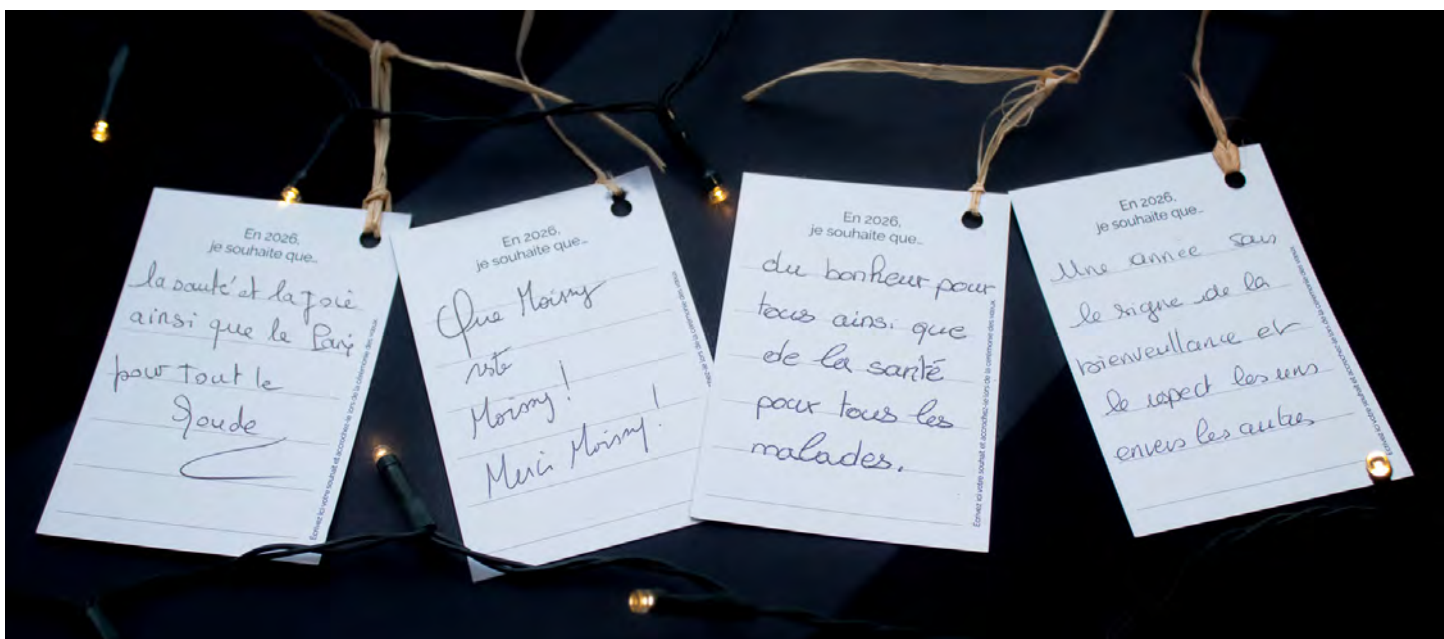 En 2026,
je souhaite que...
la santé et la joie
ainsi que la Paix
pour tout le
Monde
Ecrivez ici votre souhait et accrochez-le lors de la cérémonie des vœux
En 2026,
je souhaite que...
Que Moissy
reste
Moissy!
Merci Moissy!
lors de la cérémonie des vœux
En 2026,
je souhaite que...
du bonheur pour
tous ainsi que
de la santé
pour tous les
malades.
Ecrivez ici votre souhait et accrochez-le lors de la cérémonie des vœux
En 2026,
je souhaite que...
Une année sous
le signe de la
bienveillance et
le respect les uns
envers les autres
Ecrivez ici votre souhait et accrochez-le lors de la cérémonie des vœux